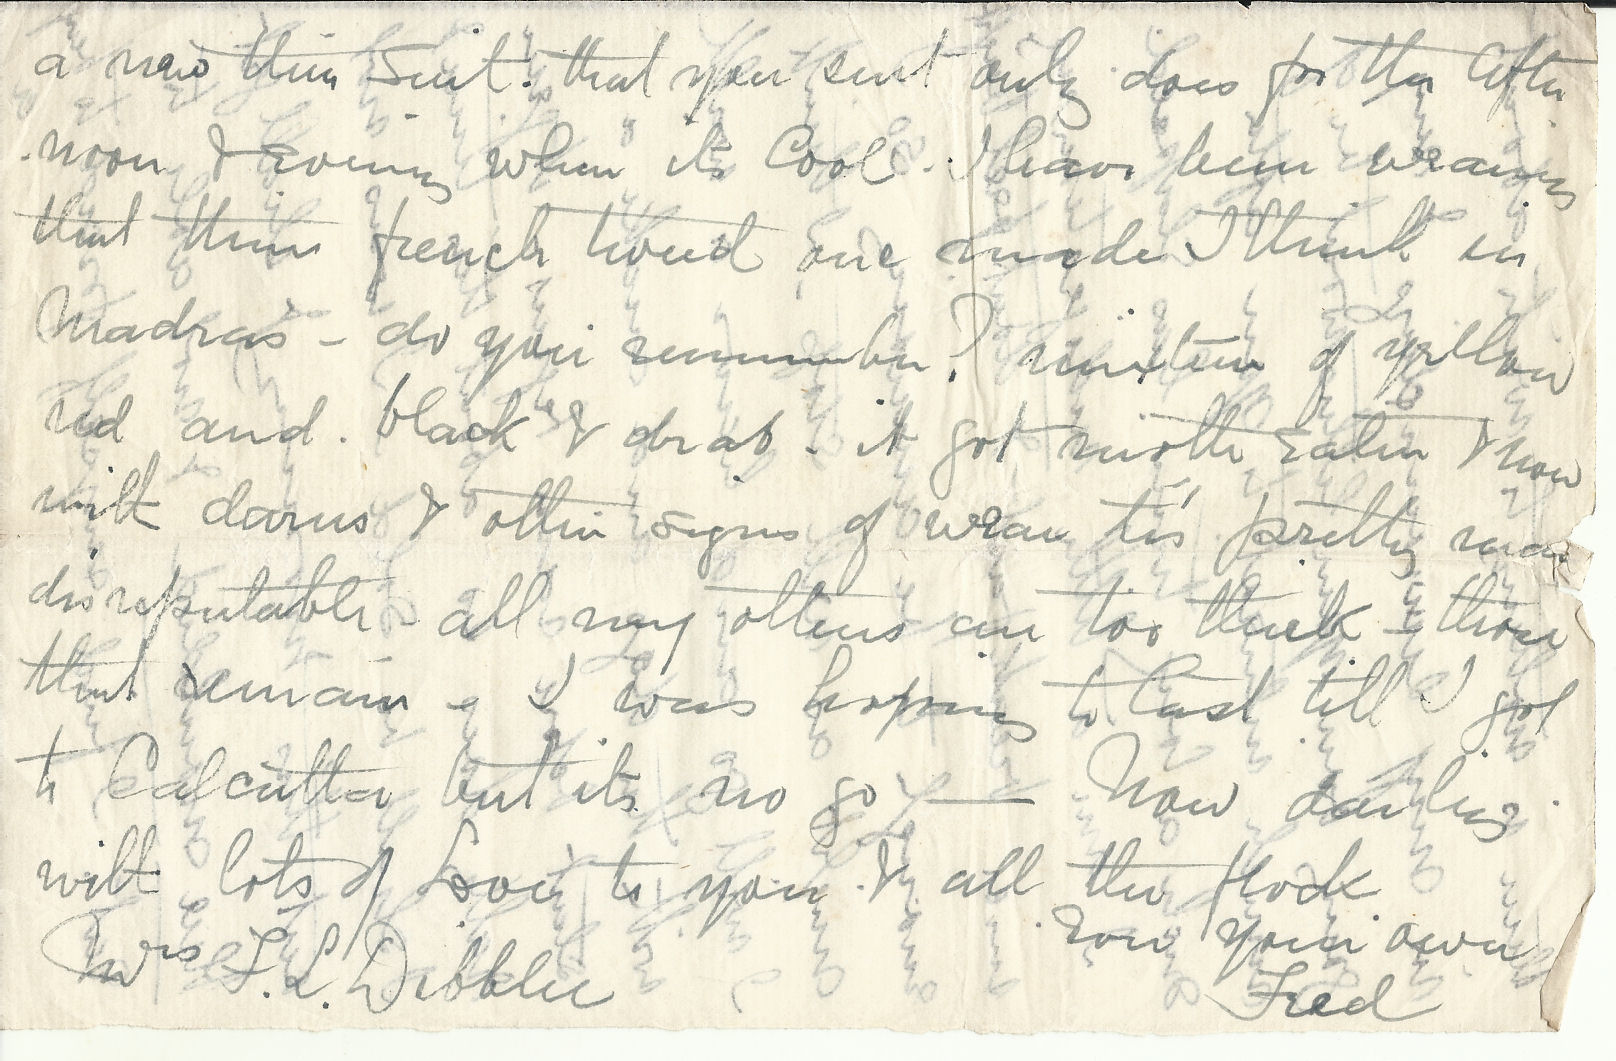 a new thin suit. that you sent only does for the after
noon & evening when its Cool. I have been wearing
that thin french tweed one made I think in
Madras – do you remember? mixture of yellow
red and. black & drab. it got moth eaten & now
with darns & other signs of wear tis pretty near
disreputable – all my others are too thick – those
that remain – I was hoping to last till I got
to Calcutta but its no go — Now darling
with lots of Love to you & all the flock
Ever your own
Mrs F. L. Dibblee Fred